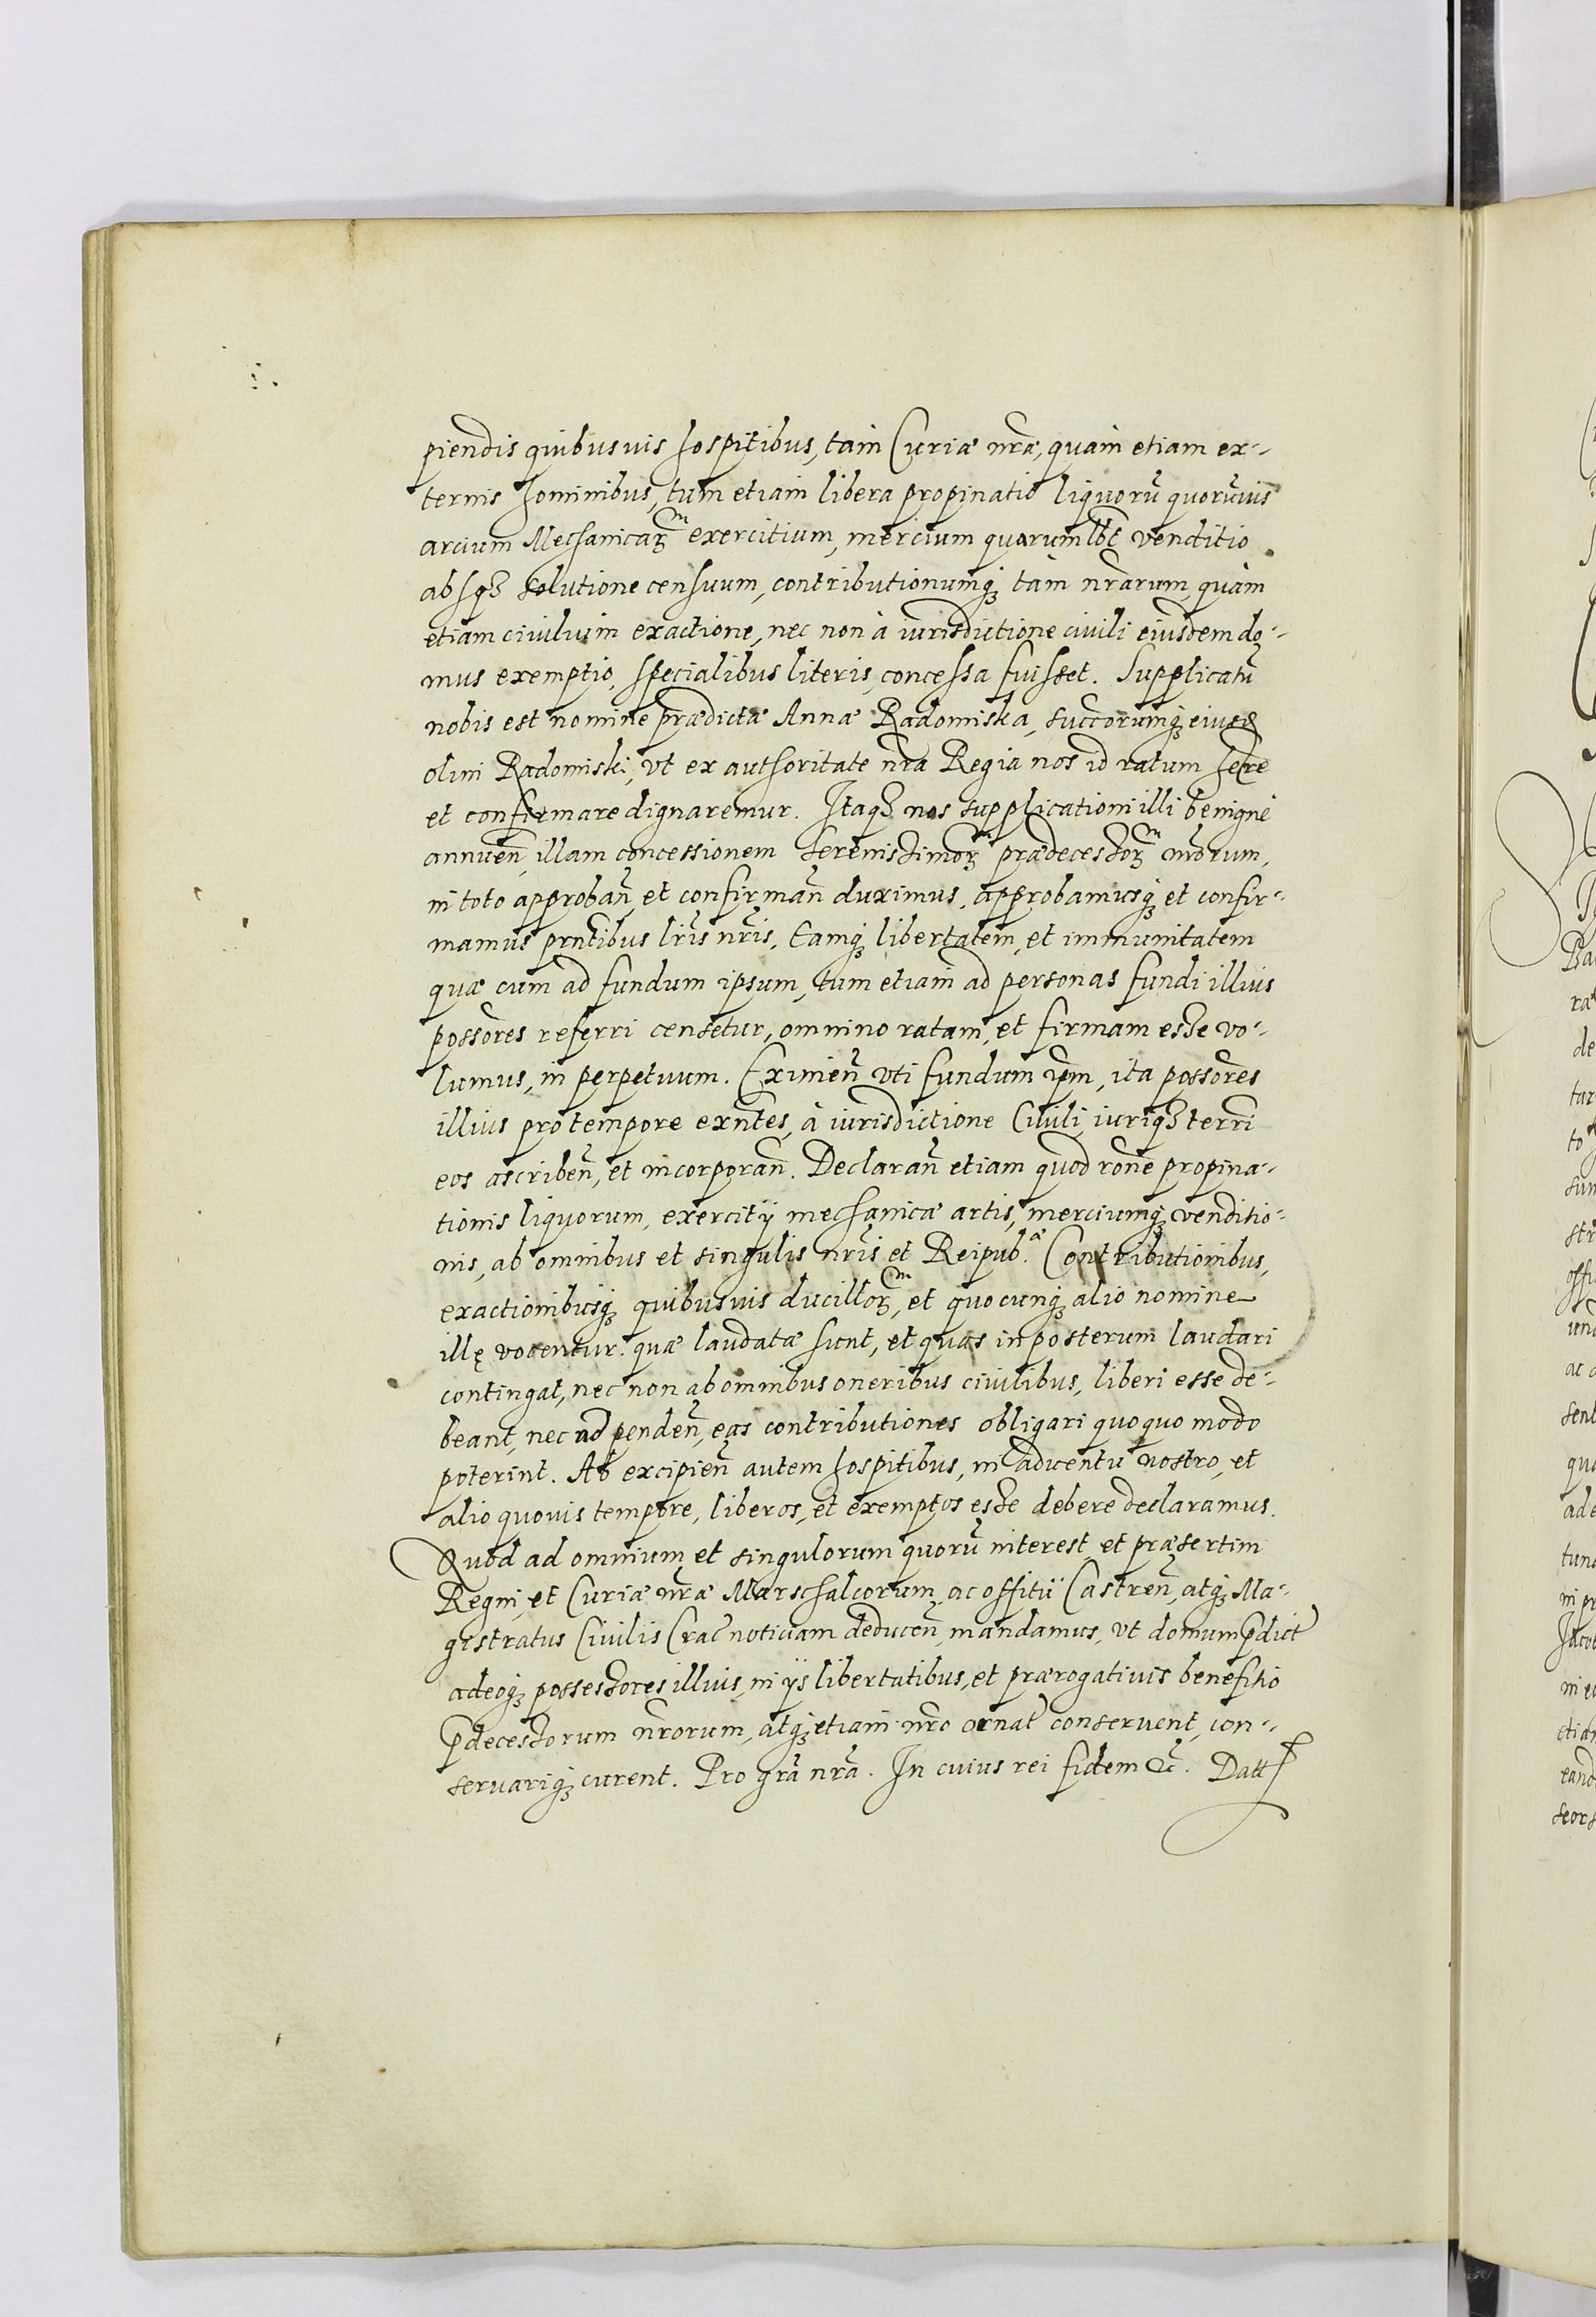 piendis quibusuis hospitibus, tam Curiæ nr̃æ, quam etiam ex-
ternis hominibus, tum etiam libera propinatio liquorũ quorũuis
arcium Mechanicarꝫ exercitium, mercium quarumlbt venditio
absqꝫ solutione censuum, contributionumqꝫ tàm nr̃arum, quàm
etiam ciuiluim exactione, nec non à iurisdictione ciuili eiusdem do-
mus exemptio, specialibus literis, concessa fuisset. Supplicatũ
nobis est nomine prædictæ Annæ Radomiska, succorumqꝫ eiusd
olim Radomiski, vt ex authoritate nr̃a Regia nos id ratum here
et confirmare dignaremur. Itaqꝫ nos supplicationi illi benignè
annuen̄, illam concessionem Serenissimorꝫ prædecessorꝫ nr̃orum,
in toto approban̄, et confirman̄ duximus, approbamusqꝫ et confir-
mamus prntibus lr̃is nr̃is, Eamqꝫ libertatem, et immunitatem
quæ cum ad fundum ipsum, tum etiam ad personas fundi illius
possores referri censetur, omnino ratam, et firmam esse vo-
lumus, in perpetuum. Eximien̄ vti fundum ip̃m, ita possores
illius pro tempore exñtes, à iurisdictione Ciuili, iuriqꝫ terri
eos ascriben̄, et incorporan̄. Declaran̄ etiam quod rõne propina-
tionis liquorum, exercitÿ mechanicæ artis, merciumqꝫ venditio-
nis, ab omnibus et singulis nr̃is et Reipub.æ Contributionibus,
exactionibusqꝫ quibusuis ducillorꝫ, et quocunqꝫ alio nomine
illę vocentur. quæ laudatæ sunt, et quas in posterum laudari
contingat, nec non ab omnibus oneribus ciuilibus, liberi esse de-
beant, nec ad penden̄, eas contributiones obligari quoquo modo
poterint. Ab excipien̄ autem hospitibus, in aduentu nostro, et
alio quouis tempore, liberos, et exemptos esse debere declaramus.
Quod ad omnium, et singulorum quorũ interest, et præsertim
Regni, et Curiæ nr̃æ Marschalcorum, ac offitii Castren̄, atqꝫ Ma-
gistratus Ciuilis Crac̃ notitiam deducen̄, mandamus, vt domum p̃dict
adeoqꝫ possessores illius, in ÿs libertatibus, et prærogatiuis benefitio
p̃decessorum nr̃orum, atqꝫ etiam nr̃o ornat̃ conseruent, con-
seruariqꝫ curent. Pro gr̃a nr̃a. In cuius rei fidem &c̃. Datt